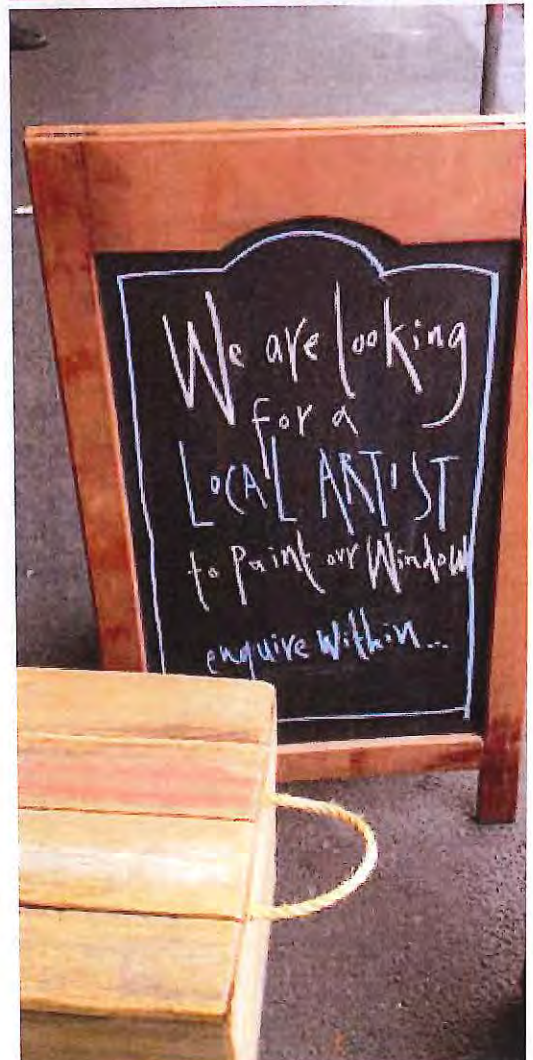 We are looking
for a
LOCAL ARTIST
to Paint our Window
enquire within...